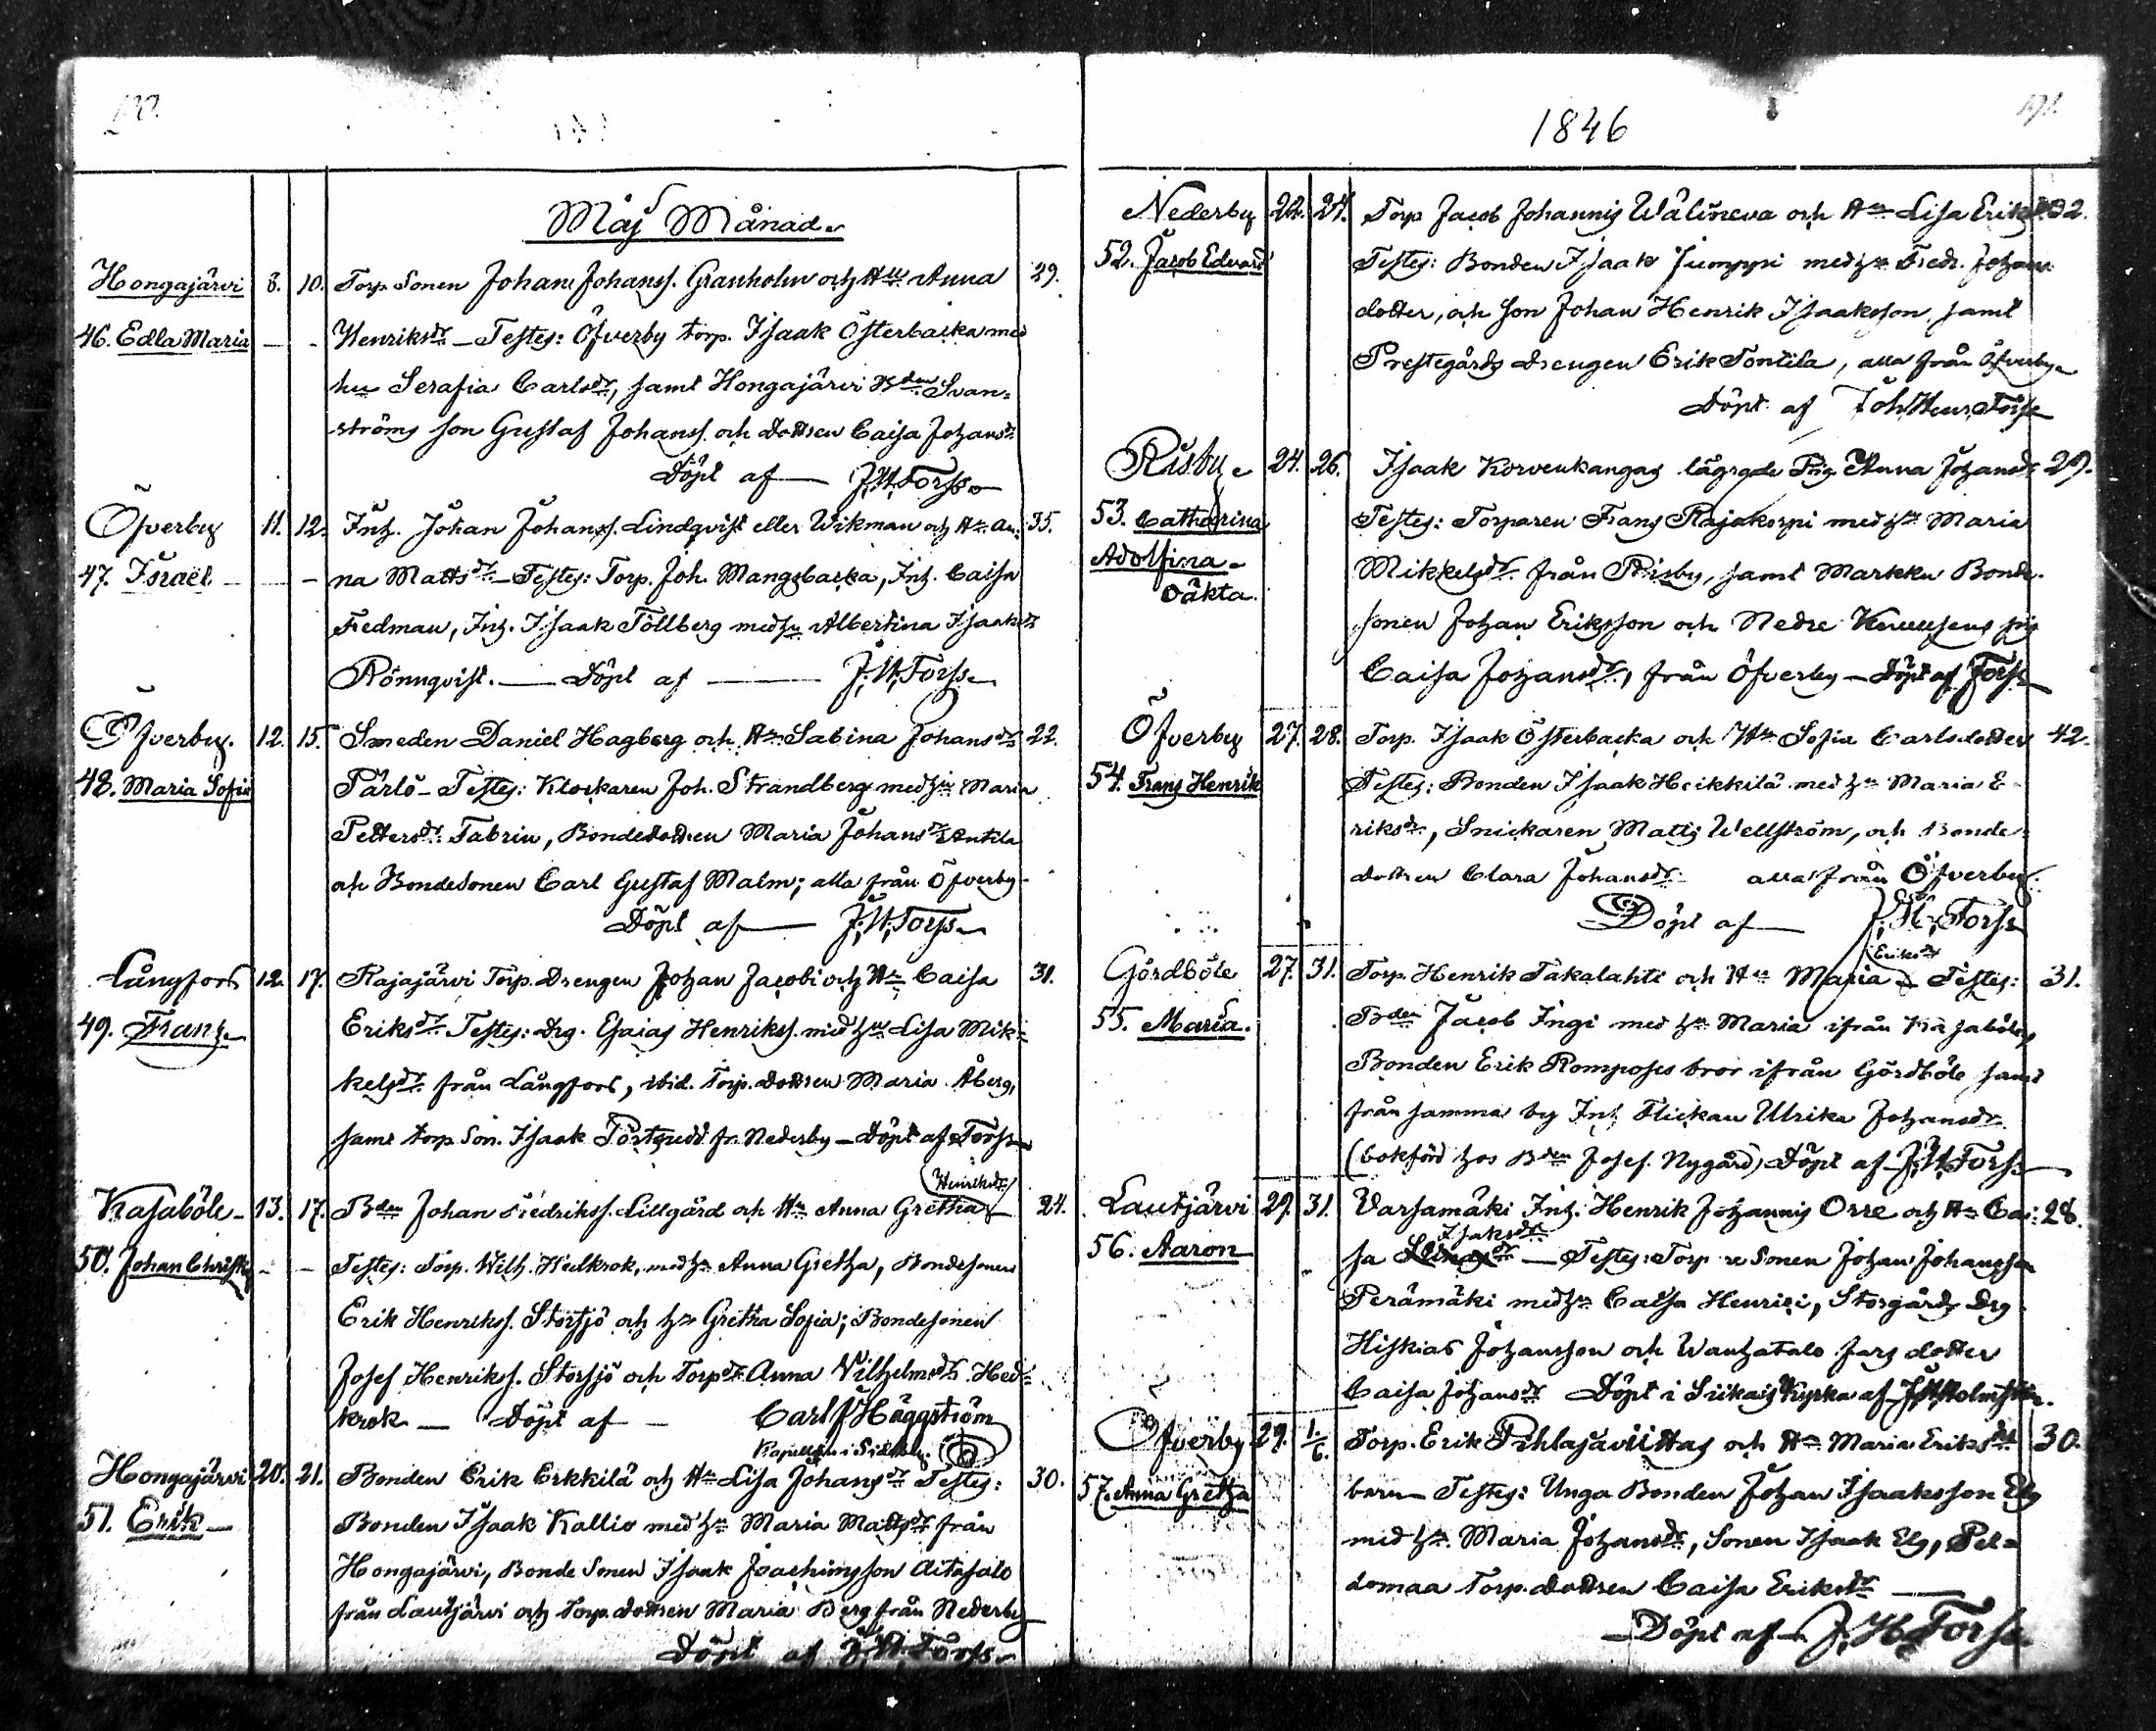 1846
Maj Månad
Hongajärvi 8. 10. Torp. Sonen Johan Johanss. Granholm och Hu Anna 29.
46. Edla Maria — - Henriksdr — Testes: Öfverby torp. Isaak Österbacka med
hu Serafia Carlsdr, samt Hongajärvi Bden Svan=
ströms son Gustaf Johanss. och dottren Caisa Johansdr
Döpt af — J. H. Forss
Öfverby 11. 12. Inh. Johan Johanss. Lindqvist eller Wikman och Hu An= 35.
47. Israël — — na Mattsdr — Testes: Torp. Joh. Mangsbacka, Inh. Caisa
Fredman, Inh. Isaak Töllberg med hu Albertina Isaaksdr
Rönnqvist. — Döpt af — J. H. Forss
Öfverby. 12. 15. Smeden Daniel Hagberg och Hu Sabina Johansdr 22.
48. Maria Sofia Pärlö — Testes: Klockaren Joh. Strandberg med hu Maria
Pettersdr Fabrin, Bondedottren Maria Johansdr Antila
och Bondesonen Carl Gustaf Malm; alla från Öfverby
Döpt af — J. H. Forss
Långfors 12. 17. Rajajärvi Torp. Drengen Johan Jacobi och Hu Caisa 31.
49. Frans Eriksdr Testes: Drg. Esaias Henrikss. med hu Lisa Mik=
kelsdr från Långfors, ibid. Torp. dottren Maria Åberg,
samt torp. Son. Isaak Pörtqvist fr. Nederby — Döpt af Forss
Henriksdr
Kasaböle 13. 17. Bden Johan Fredrikss. Lillgård och Hu Anna Gretha 24.
50. Johan Christ - — Testes: Torp. Wilh. Hedkrok, med hu Anna Gretha, Bondesonen
Erik Henrikss. Storsjö och hu Gretha Sofia; Bondesonen
Josef Henrikss. Storsjö och Torpdr Anna Vilhelmsdr Hed=
krok — Döpt af — Carl J Häggström
Kapellan i Sideby.
Hongajärvi 20. 21. Bonden Erik Erkkilä och Hu Lisa Johansdr Testes: 30.
51. Erik — Bonden Isaak Kallio med hu Maria Mattsdr från
Hongajärvi, Bonde Sonen Isaak Joachimsson Aitasalo
från Lautjärvi och Torp. dottren Maria Berg från Nederby
Döpt af J. H. Forss
Nederby 22. 24. Torp Jacob Johannis Wälineva och Hu Lisa Eriksdr 32.
52. Jacob Edvard Testes: Bonden Isaak Jumppi med hu Fredr. Johans
dotter, och son Johan Henrik Isaaksson, samt
Prestegårds drengen Erik Tontila, alla från Öfverby
Döpt af Joh Henr Forss
Risby 24. 26. Isaak Korvenkangas lägrade Pig. Anna Johansdr 29.
53. Catharina Testes: Torparen Frans Rajakorpi med hu Maria
Adolfina Mikkelsdr från Risby, samt Markku Bonde-
oäkta. sonen Johan Eriksson och Nedre Knuusens pig
Caisa Johansdr, från Öfverby — Döpt af Forss
Öfverby 27. 28. Torp. Isaak Österbacka och Hu Sofia Carlsdotter 42.
54. Frans Henrik Testes: Bonden Isaak Heikkilä med hu Maria E-
riksdr, Snickaren Matts Wellström, och Bonde-
dottren Clara Johansdr alla från Öfverby.
Döpt af — J. H. Forss
Eriksdr
Gördböle 27. 31. Torp. Henrik Takalahti och Hu Maria Testes: 31.
55. Maria. Bden Jacob Ingi med hu Maria ifrån Kasaböle,
Bonden Erik Romposes bror ifrån Gördböle samt
från samma by Inh Flickan Ulrika Johansdr
(bokförd hos Bden Josef Nygård) Döpt af J. H. Forss
Lautjärvi 29. 31. Varsamäki Inh. Henrik Johannis Orre och Hu Cai= 28.
Isaksdr
56. Aaron sa — Testes: Torp e Sonen Johan Johansson
Perämäki med hu Caisa Henrici, Storgårds Drg
Hiskias Johansson och Wanhatalo fars dotter
Caisa Johansdr Döpt i Siikais Kyrka af J. H. Holmström.
Öfverby 29. 1/6. Torp. Erik Pihlasaviittas och Hu Maria Eriksdr 30.
57. Anna Gretha barn — Testes: Unga Bonden Johan Isaaksson Elg
med hu Maria Johansdr, Sonen Isaak Elg, Pel=
domaa Torp. dottren Caisa Eriksdr —
— Döpt af — J. H. Forss